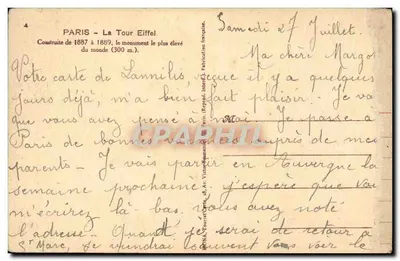 4
PARIS - La Tour Eiffel
Construite de 1887 à 1889, le monument le plus élevé
du monde (300 m.).
Samedi 27 Juillet.
Ma chère Margot
Votre carte de Lannilis, reçue il y a quelques
jours déjà, m'a bien fait plaisir. Je vois
que vous avez pensé à moi. Je passe à
Paris de bonnes vacances auprès de mes
parents - Je vais partir en Auvergne la
semaine prochaine. j'espère que vous
m'écrirez là-bas. vous avez noté
l'adresse. Quand je serai de retour à
St Marc, je viendrai souvent vous voir le
CPARAMA